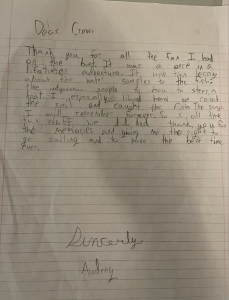 Dear Crown
Thank you for all the fun I had
on the boat. It was a once in a
lifetime adventure. It was fun
about the water samples to the
people to how to steer
that I especially liked how we raised
the sail and caught the fish. The songs
I will remember forever. So
thank you for
the memories and giving me the right to
go sailing and to have the best time
ever.
Sincerly
Audrey